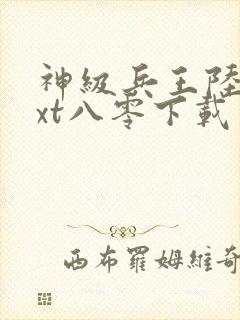 神級兵王陸
xt八零下載
西布羅姆維奇